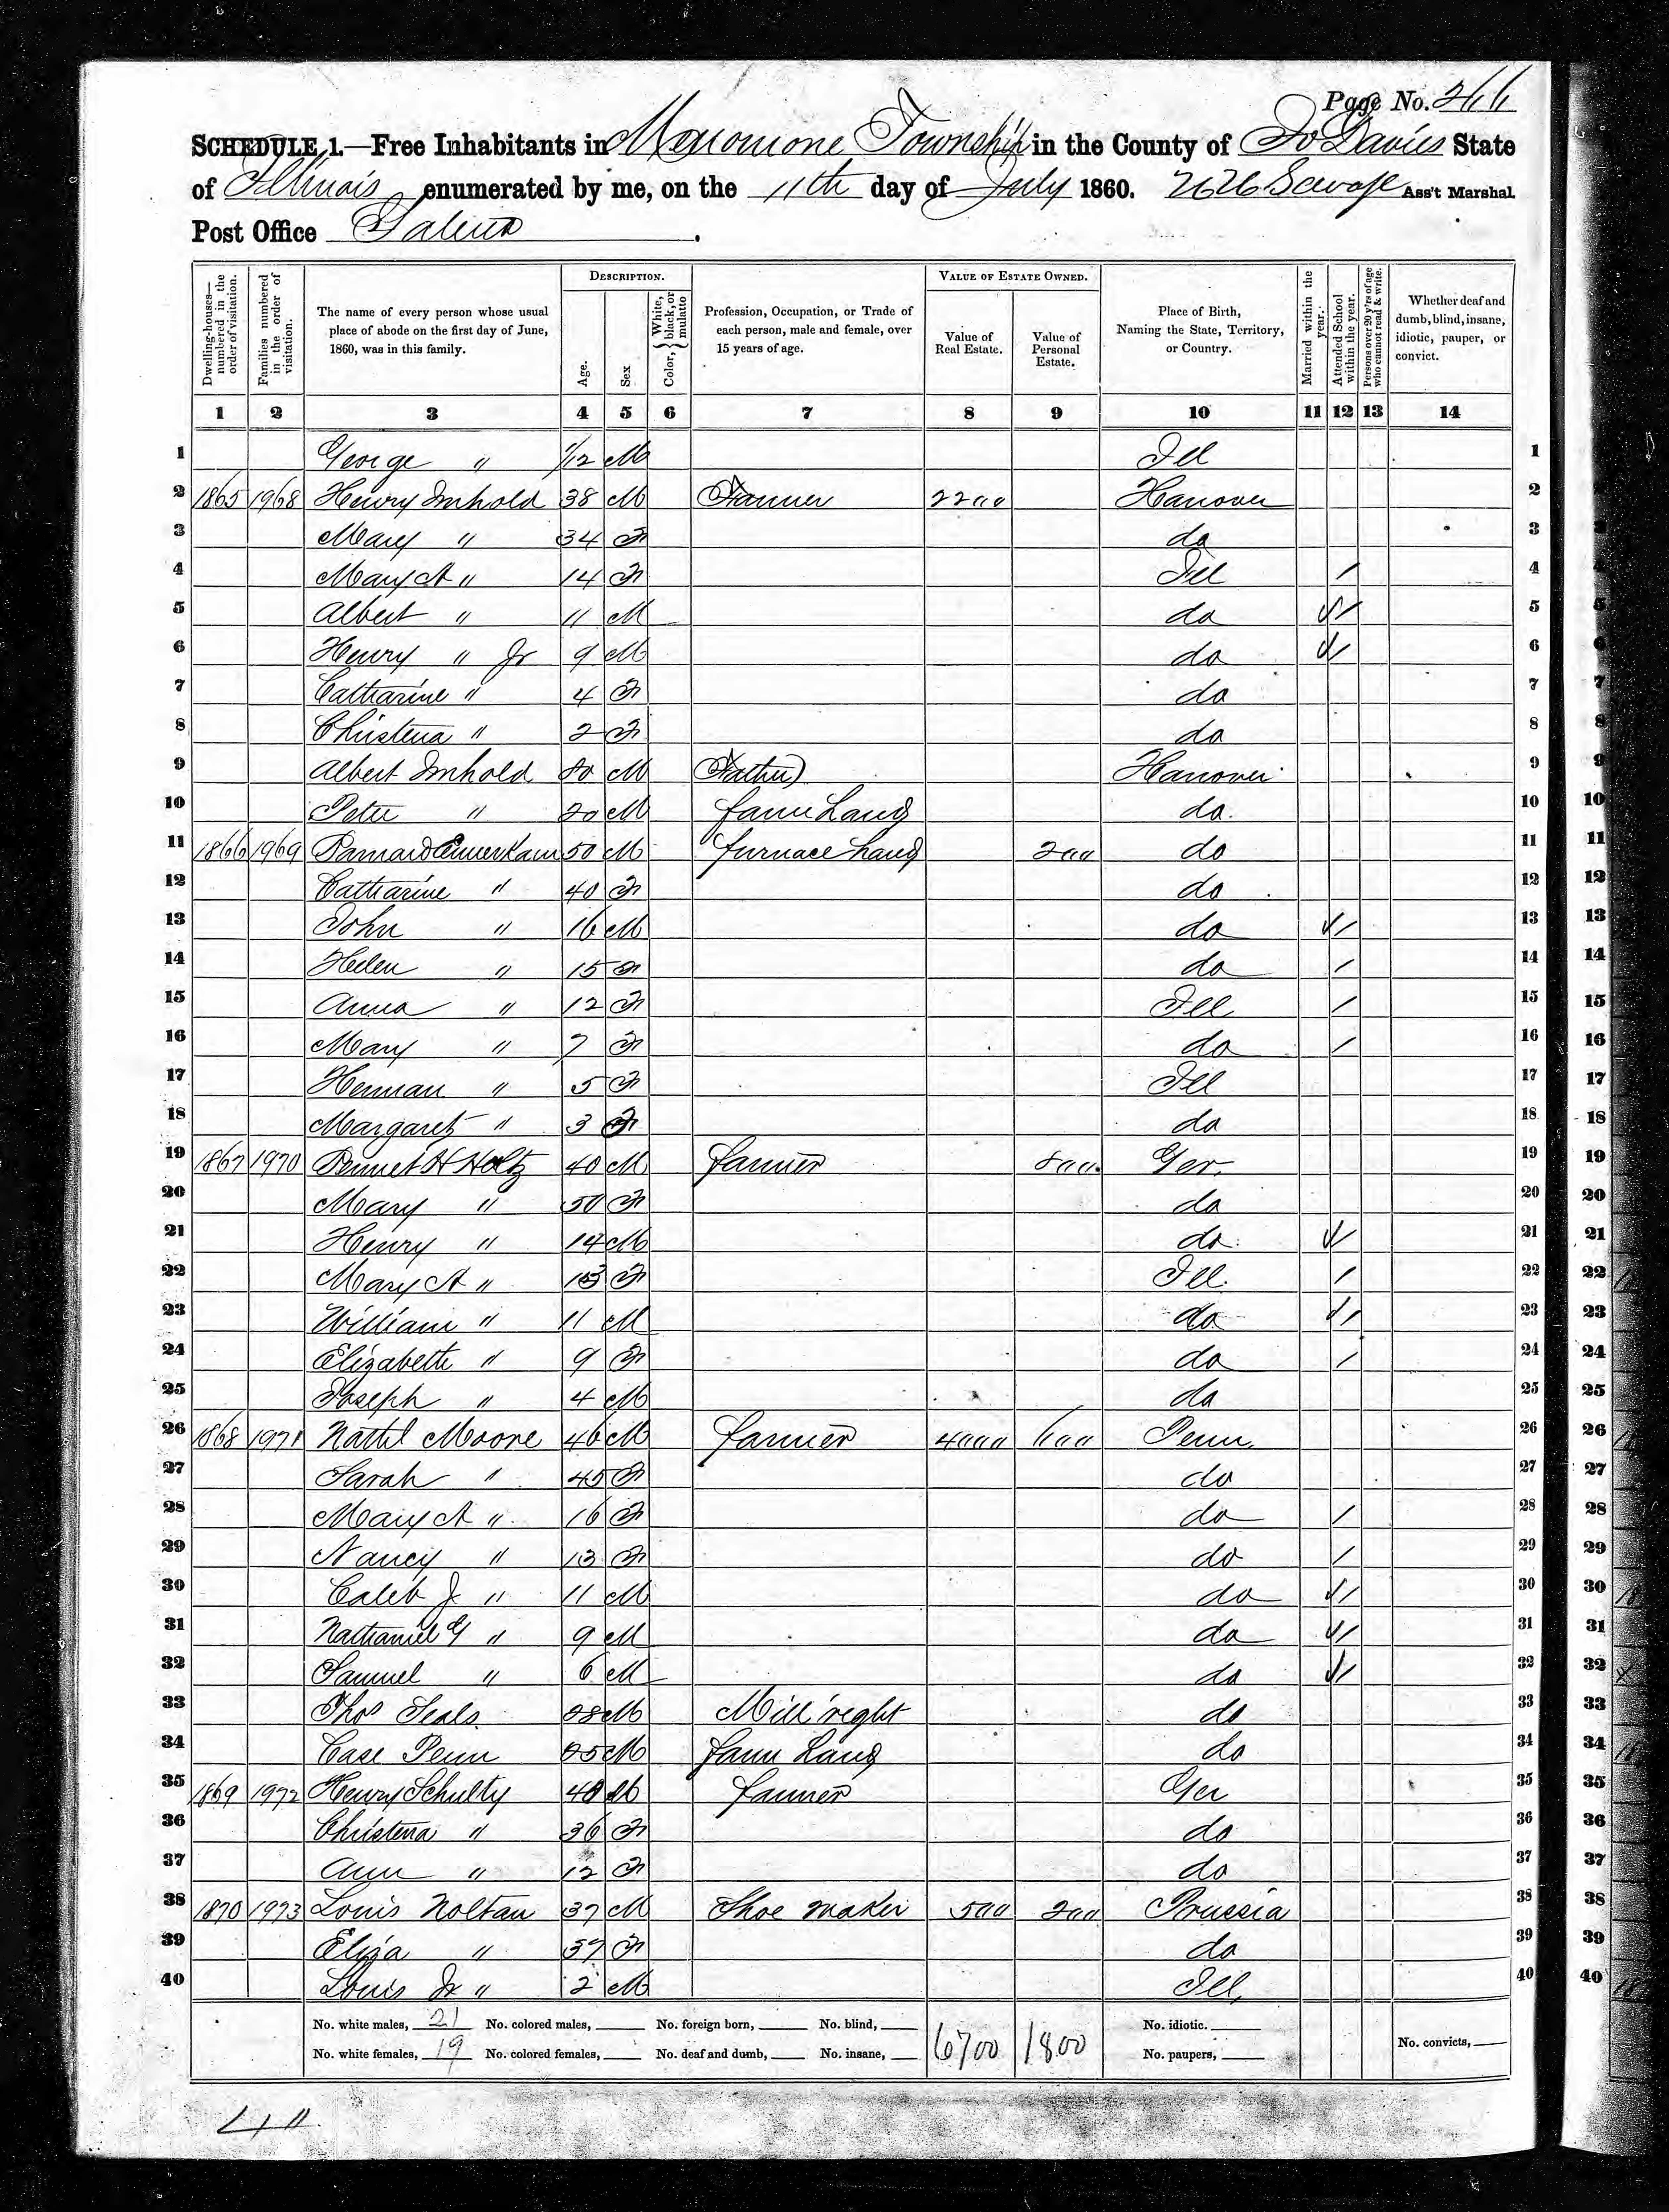 Page No. 
SCHEDULE 1.—Free Inhabitants in Township in the County of Jo Davies State
of Illinois enumerated by me, on the 11th day of July 1860. Ass't Marshal
Post Office Galena.
DESCRIPTION. VALUE OF ESTATE OWNED.
Dwelling-houses—numbered in the order of visitation. Families numbered in the order of visitation. The name of every person whose usual place of abode on the first day of June, 1860, was in this family. Age. Sex Color, { White, black, or mulatto Profession, Occupation, or Trade of each person, male and female, over 15 years of age. Value of Real Estate. Value of Personal Estate. Place of Birth, Naming the State, Territory, or Country. Married within the year. Attended School within the year. Persons over 20 y'rs of age who cannot read & write. Whether deaf and dumb, blind, insane, idiotic, pauper, or convict.
1 2 3 4 5 6 7 8 9 10 11 12 13 14
1 George " 1/12 M Ill 1
2 1865 1968 Henry Imhold 38 M Farmer 2200 Hanover 2
3 Mary " 34 F do 3
4 Mary A " 14 F Ill / 4
5 Albert " 11 M do / 5
6 Henry " Jr 9 M do / 6
7 Catharine " 4 F do 7
8 Christena " 2 F do 8
9 Albert Imhold 80 M (Father) Hanover 9
10 Peter " 20 M farm Laug do. 10
11 1866 1969 50 M furnace Laug 200 do 11
12 Catharine " 40 F do 12
13 John " 16 M do / 13
14 Helen " 15 F do / 14
15 Anna " 12 F Ill / 15
16 Mary " 7 F do / 16
17 Herman " 5 F Ill 17
18 Margaret " 3 F do 18
19 1867 1970 Bennet H Holtz 40 M farmer 800 Ger. 19
20 Mary " 50 F do 20
21 Henry " 14 M do / 21
22 Mary A " 13 F Ill. / 22
23 William " 11 M do / 23
24 Elizabeth " 9 F do / 24
25 Joseph " 4 M do 25
26 1868 1971 Nathl Moore 46 M farmer 4000 600 Penn. 26
27 Sarah " 45 F do 27
28 Mary A " 16 F do / 28
29 Nancy " 13 F do / 29
30 Caleb J " 11 M do / 30
31 Nathaniel G " 9 M do / 31
32 Samuel " 6 M do / 32
33 Thos Seals M Mill right do 33
34 Case Penn M farm Laug do 34
35 1869 1972 Henry Schulty 40 M farmer Ger 35
36 Christena " 36 F do 36
37 Ann " 12 F do 37
38 1870 1973 Louis Noltan 37 M Shoe maker 500 200 Prussia 38
39 Eliza " 37 F do 39
40 Louis Jr " 2 M Ill, 40
No. white males, 21 No. colored males, No. foreign born, No. blind, 6700 1800 No. idiotic.
No. white females, 19 No. colored females, No. deaf and dumb, No. insane, No. paupers, No. convicts,